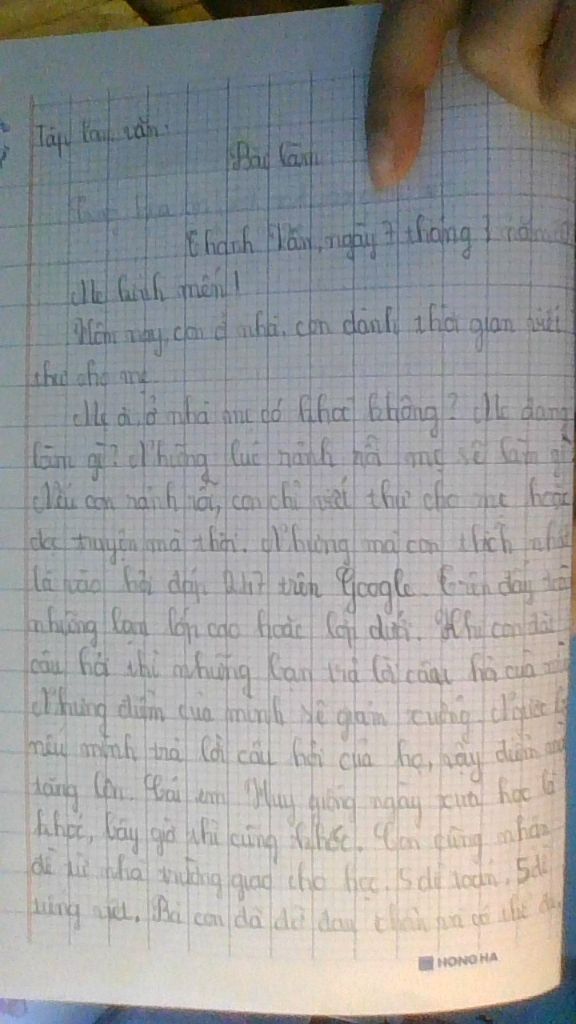 Tập làm văn:
Bài làm
Thanh Vân, ngày 7 tháng 1 năm
Mẹ kính mến!
Hôm nay, con ở nhà, con dành thời gian viết
thư cho mẹ.
Mẹ ơi, ở nhà mẹ có khoẻ không? Mẹ đang
làm gì? Những lúc rảnh rỗi mẹ sẽ làm gì
Nếu con rảnh rỗi, con chỉ viết thư cho mẹ hoặc
đọc truyện mà thôi. Nhưng mà con thích nhất
là vào hỏi đáp 247 trên Google. Trên đây
những bạn lớp cao hoặc lớp dưới. Khi con đặt
câu hỏi thì những bạn trả lời câu hỏi của mình
Nhưng điểm của mình sẽ giảm xuống. Ngược lại
nếu mình trả lời câu hỏi của họ, vậy điểm
tăng lên. Cái em Huy giống ngày xưa học
khóc, bây giờ thì cũng khóc. Con cũng nhận
đề từ nhà trường giao cho học. 5 đề toán, 5 đề
tiếng việt. Bà con đã đỡ đau chân và có thể
HONG HA